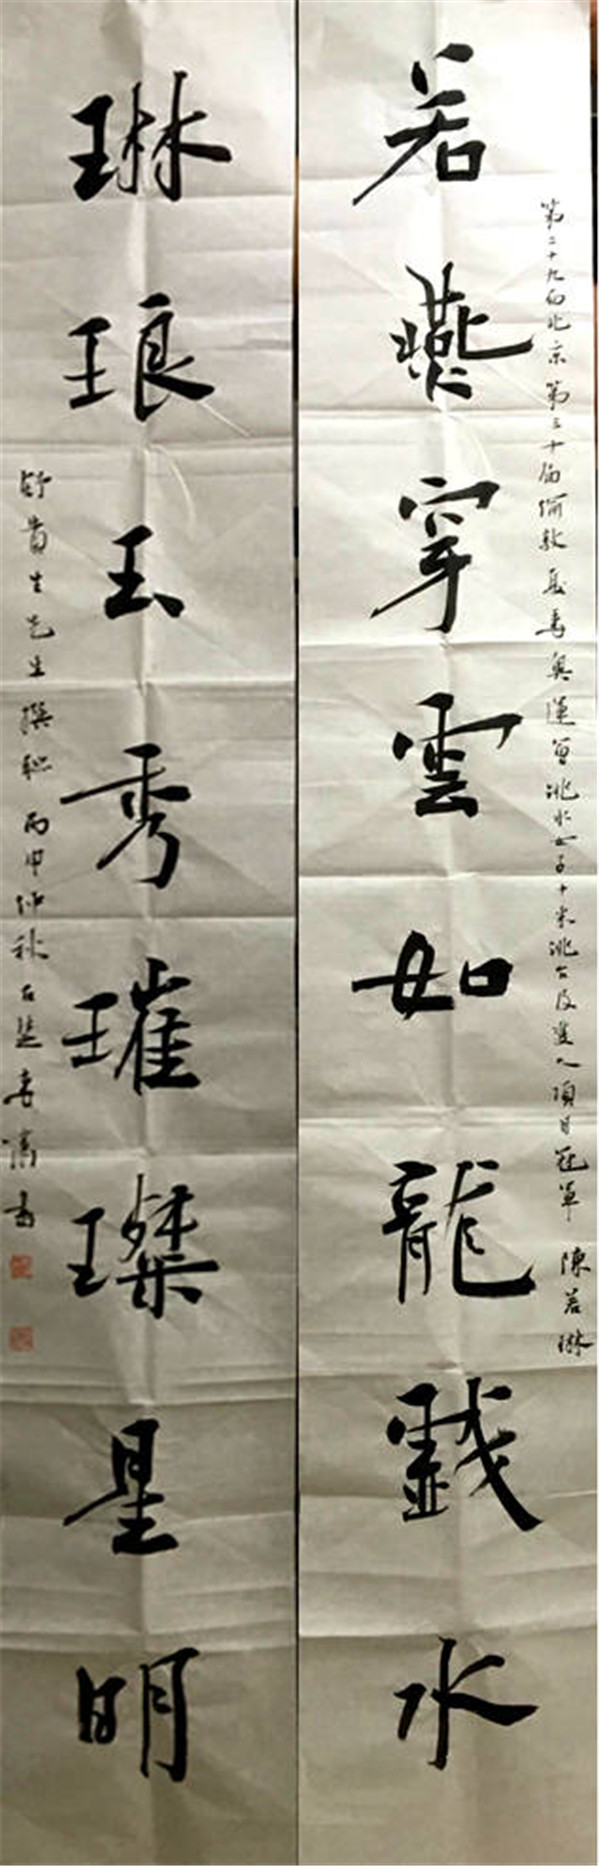 第二十九屆北京第三十屆倫敦夏季奧運會跳水女子十米跳台及雙人項目冠軍 陳若琳
若燕穿雲如龍戲水
琳琅玉秀璀璨星明
舒貴生先生撰联 丙申仲秋